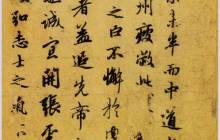 業未半而中道
州疲敝此
之臣不懈於內
者蓋追先帝
也誠宜開張聖
弘志士之氣